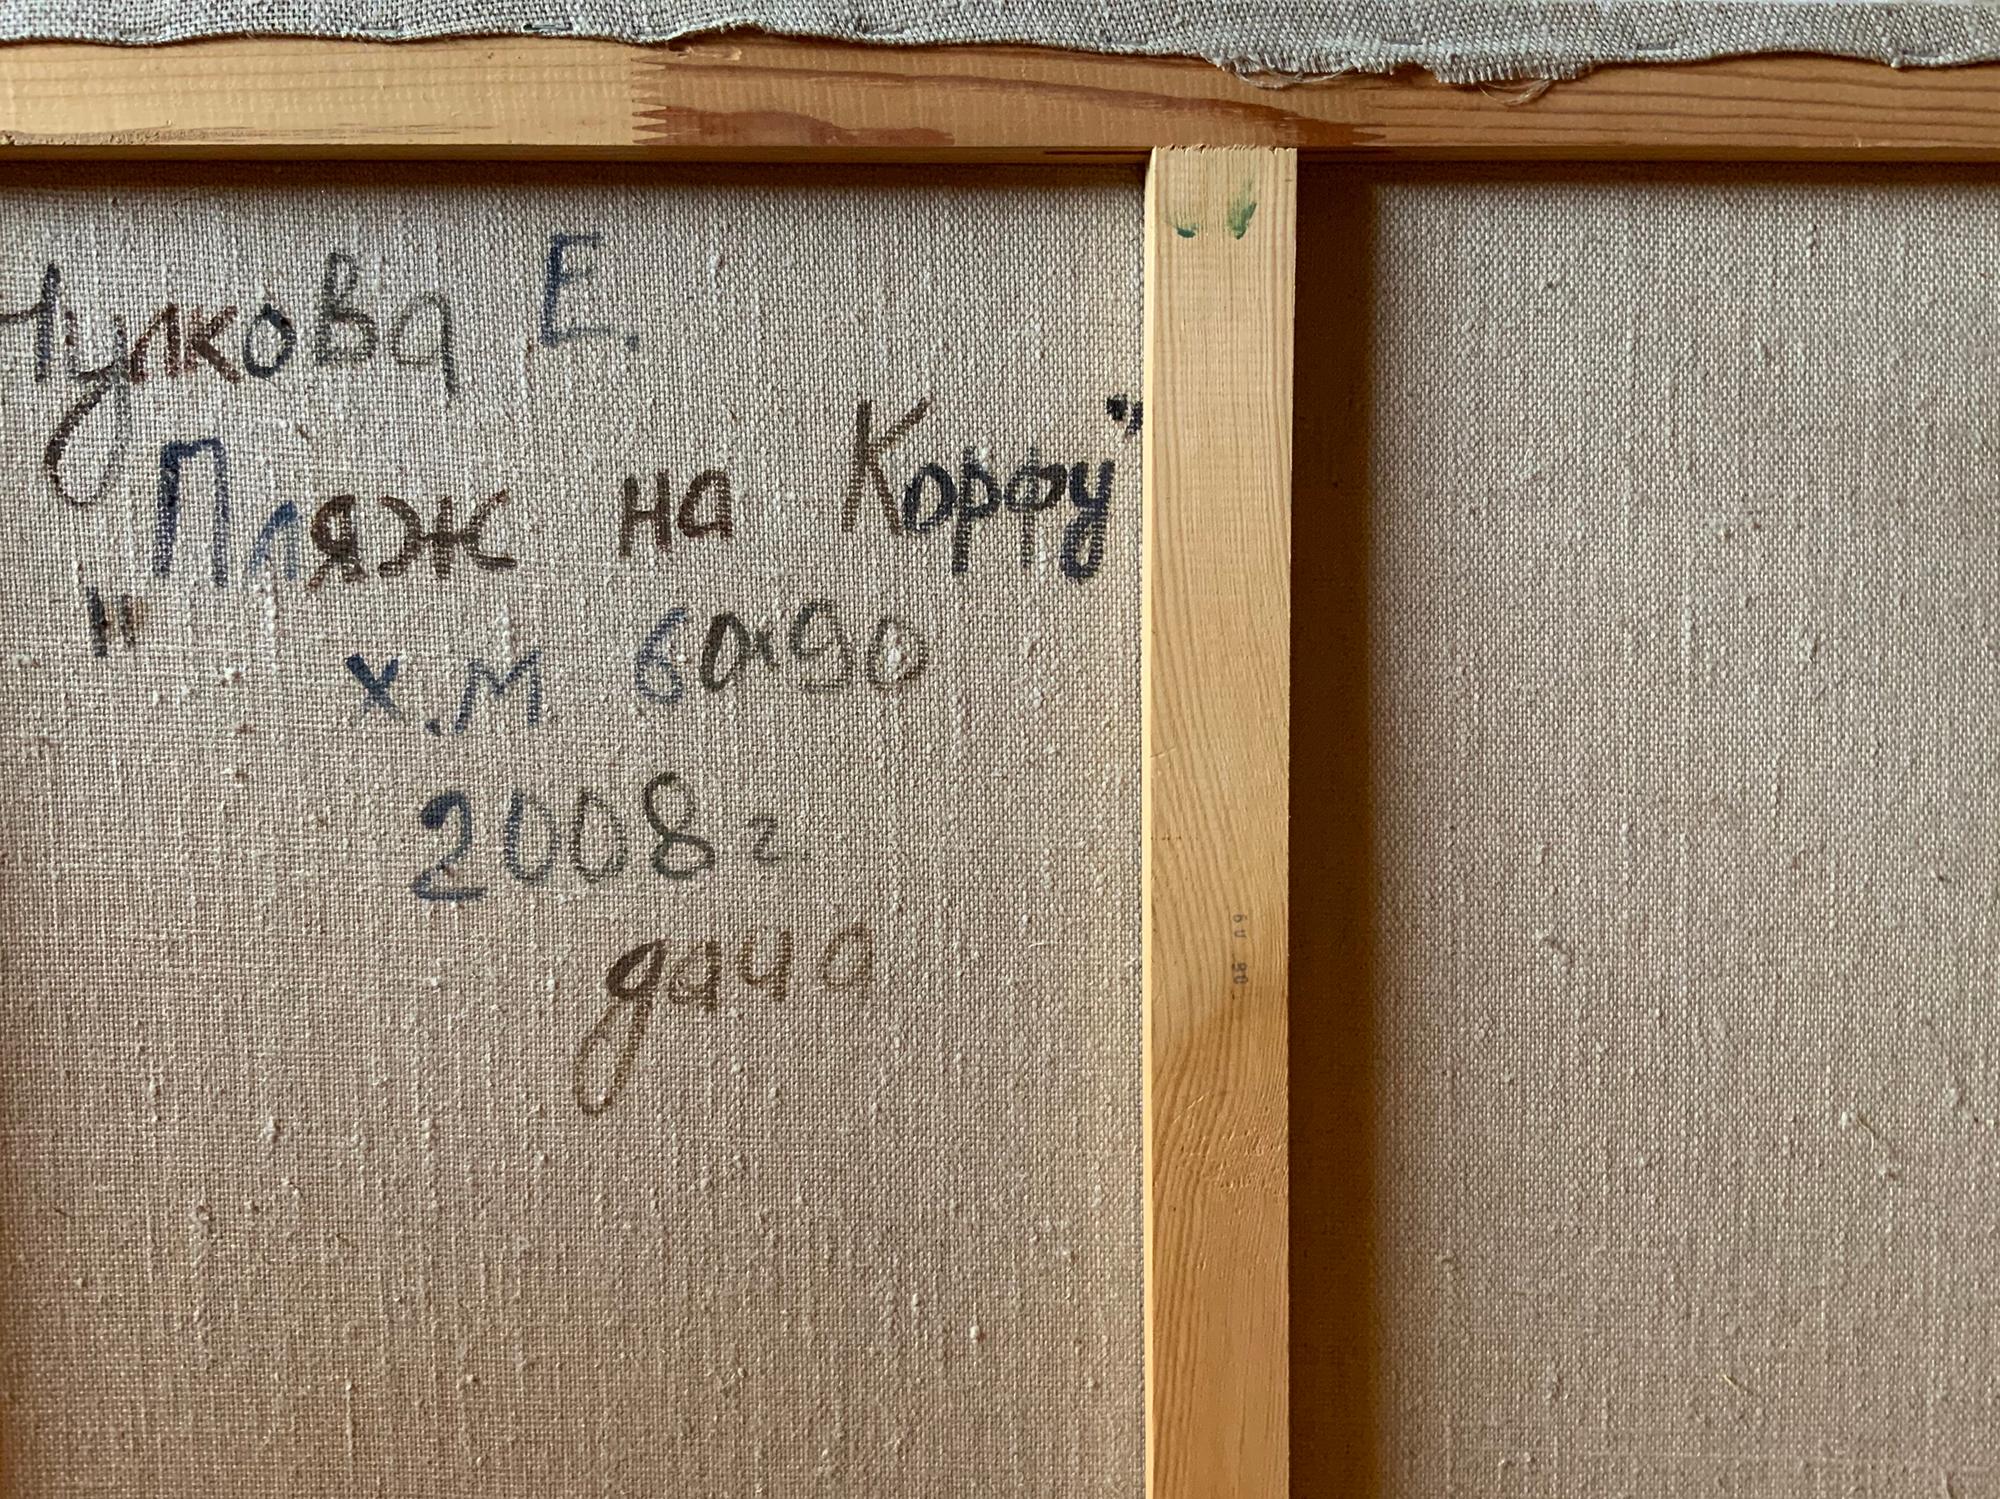 Чулкова Е.
"Пляж на Корфу"
х.м. 60х90
2008 г.
дача
60 90